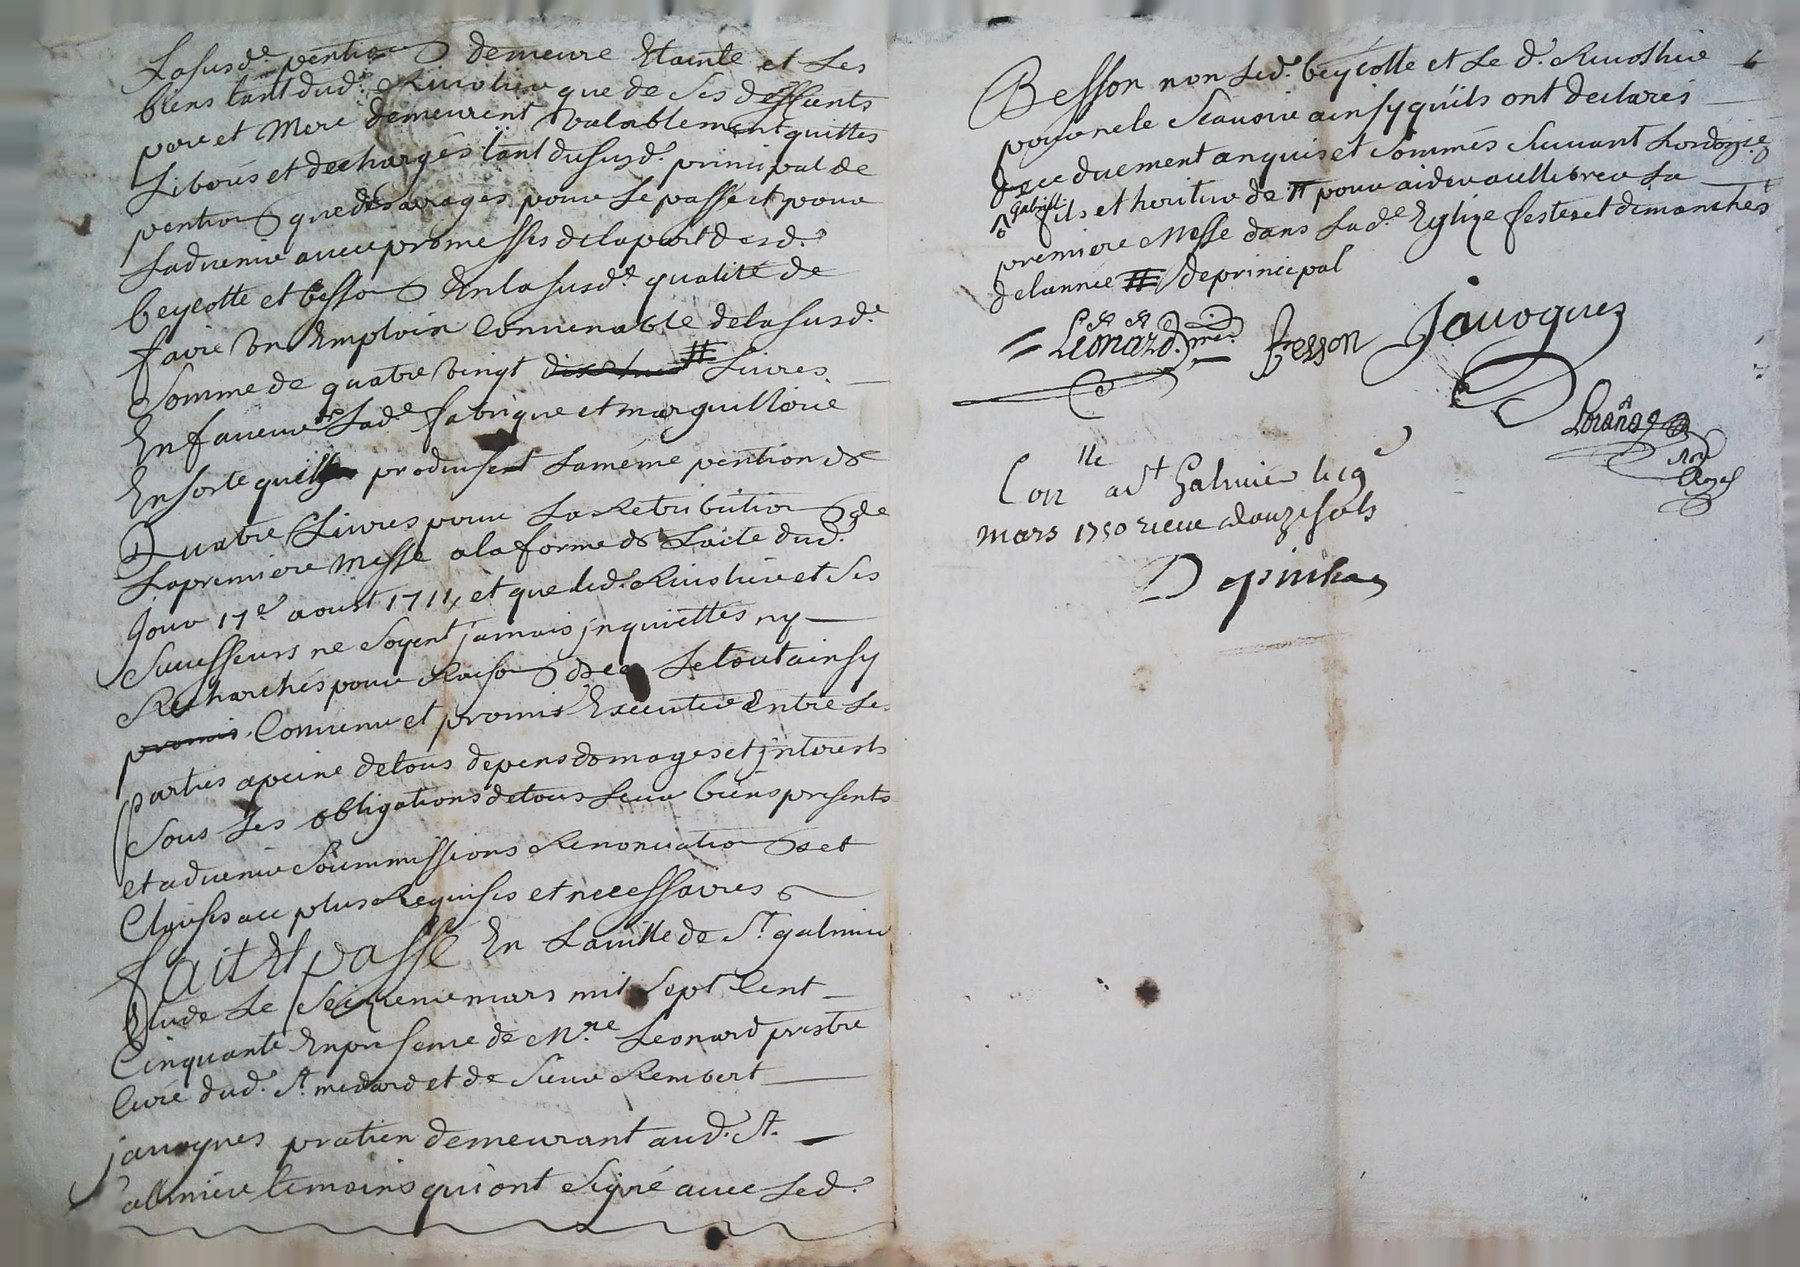 Lasusde. pention demeure Etainte et Les
biens tant dud. Rivolier que de Ses deffunts
pere et Mere demeurent Valablement quittes
Liberés et dechargés tant du susd. principal de
pention que des arrages pour Le passé et pour
Ladvenir avec promesses de la part desd.
beycotte et besson En la susde. qualité de
faire Un Employ Convenable de la susde.
Somme de quatre vingt dixhuit # Livres
En faveur de Lade. fabrique et marguillerie
En sorte quils produisent La méme pention de
Quatre Livres pour La Retribution de
La premiere Messe a la forme de Laite dud.
jour 17e aoust 1711, et que led. Rivolier et Ses
Successeurs ne Soyent jamais jnquiettes ny
Recharchés pour Raison de ce Le tout ainsy
promis Convenu et promis Executer Entre Les
Parties a peine de tous depens domages et jnterests
Sous Les obligations de tous Leur biens presents
et advenir Soummissions Renonciations et
Clauses au plus Requises et necessaires
fait Et passé En La ville de St. galmier
Etude Le Seizieme mars mil Sept Cent
Cinquante En presence de Mre. Leonard prestre
Curé dud. St. medard et de Sieur Rembert
javogues pratien demeurant aud. St.
galmier temoins qui ont Signé avec Led.
Besson non Led. beycotte et Le d. Rivollier
pour ne le Scavoir ainsy quils ont declarés
de ce duement anquis et Sommés Suivant Lordonce.
gabriel
fils et heritier de # pour aider a cellebrer La
premiere Messe dans Lade. Eglize festes et dimanches
de Lannée # de principal
Leonard Besson Javogues
Con lle a St Galmier le 19e
mars 1750 receu douze sols